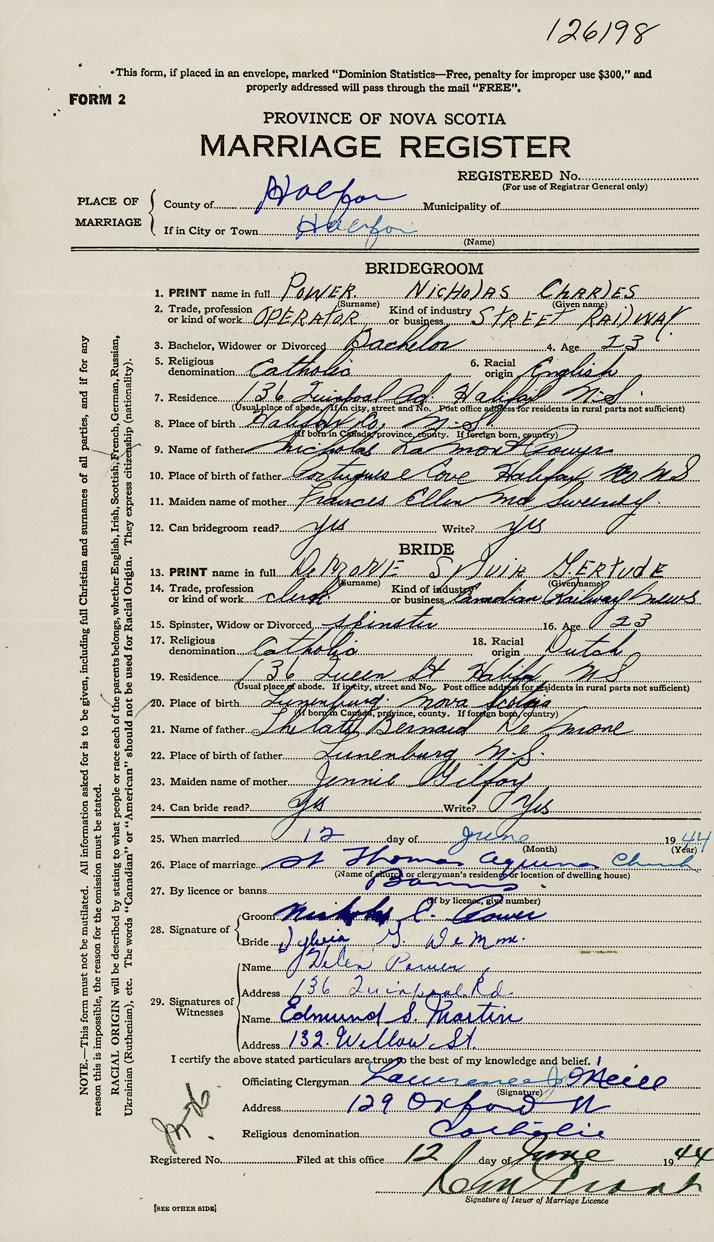 126198
•This form, if placed in an envelope, marked "Dominion Statistics—Free, penalty for improper use $300," and
properly addressed will pass through the mail "FREE".
FORM 2
PROVINCE OF NOVA SCOTIA
MARRIAGE REGISTER
REGISTERED No.
(For use of Registrar General only)
PLACE OF MARRIAGE
County of Halifax Municipality of
If in City or Town Halifax
(Name)
BRIDEGROOM
1. PRINT name in full POWER NICHOLAS CHARLES
(Surname) (Given name)
2. Trade, profession or kind of work OPERATOR Kind of industry or business STREET RAILWAY
3. Bachelor, Widower or Divorced Bachelor 4. Age 23
5. Religious denomination Catholic 6. Racial origin English
7. Residence 136 Quinpool Rd Halifax N-S
(Usual place of abode. If in city, street and No. Post office address for residents in rural parts not sufficient)
8. Place of birth Halifax Co. N-S
(If born in Canada, province, county. If foreign born, country)
9. Name of father Nicholas Power
10. Place of birth of father Portuguese Cove Halifax Co NS
11. Maiden name of mother Frances Ellen Mc Sweeney
12. Can bridegroom read? yes Write? yes
BRIDE
13. PRINT name in full DeMONE GERTUDE
(Surname) (Given name)
14. Trade, profession or kind of work clerk Kind of industry or business Canadian Railway News
15. Spinster, Widow or Divorced spinster 16. Age 23
17. Religious denomination Catholic 18. Racial origin Dutch
19. Residence 136 Queen St Halifax NS
(Usual place of abode. If in city, street and No. Post office address for residents in rural parts not sufficient)
20. Place of birth Lunenburg Nova Scotia
(If born in Canada, province, county. If foreign born, country)
21. Name of father Bernard De Mone
22. Place of birth of father Lunenburg N-S.
23. Maiden name of mother Jennie Gilfoy
24. Can bride read? Yes Write? Yes
25. When married 12 day of June 1944
(Month) (Year)
26. Place of marriage St Thomas Aquinas Church
(Name of church or clergyman's residence or location of dwelling house)
27. By licence or banns Banns
(If by licence, give number)
28. Signature of
Groom Nicholas C. Power
Bride Sylvia G. DeMone
29. Signatures of Witnesses
Name Helen Power
Address 136 Quinpool Rd.
Name Edmund S. Martin
Address 132 Willow St.
I certify the above stated particulars are true to the best of my knowledge and belief.
Officiating Clergyman Lawrence J. O'Neill
(Signature)
Address 129 Oxford St
Religious denomination Catholic
Registered No. Filed at this office 12 day of June 1944
Signature of Issuer of Marriage Licence
[SEE OTHER SIDE]
NOTE.—This form must not be mutilated. All information asked for is to be given, including full Christian and surnames of all parties, and if for any
reason this is impossible, the reason for the omission must be stated.
RACIAL ORIGIN will be described by stating to what people or race each of the parents belongs, whether English, Irish, Scottish, French, German, Russian,
Ukrainian (Ruthenian), etc. The words "Canadian" or "American" should not be used for Racial Origin. They express citizenship (nationality).